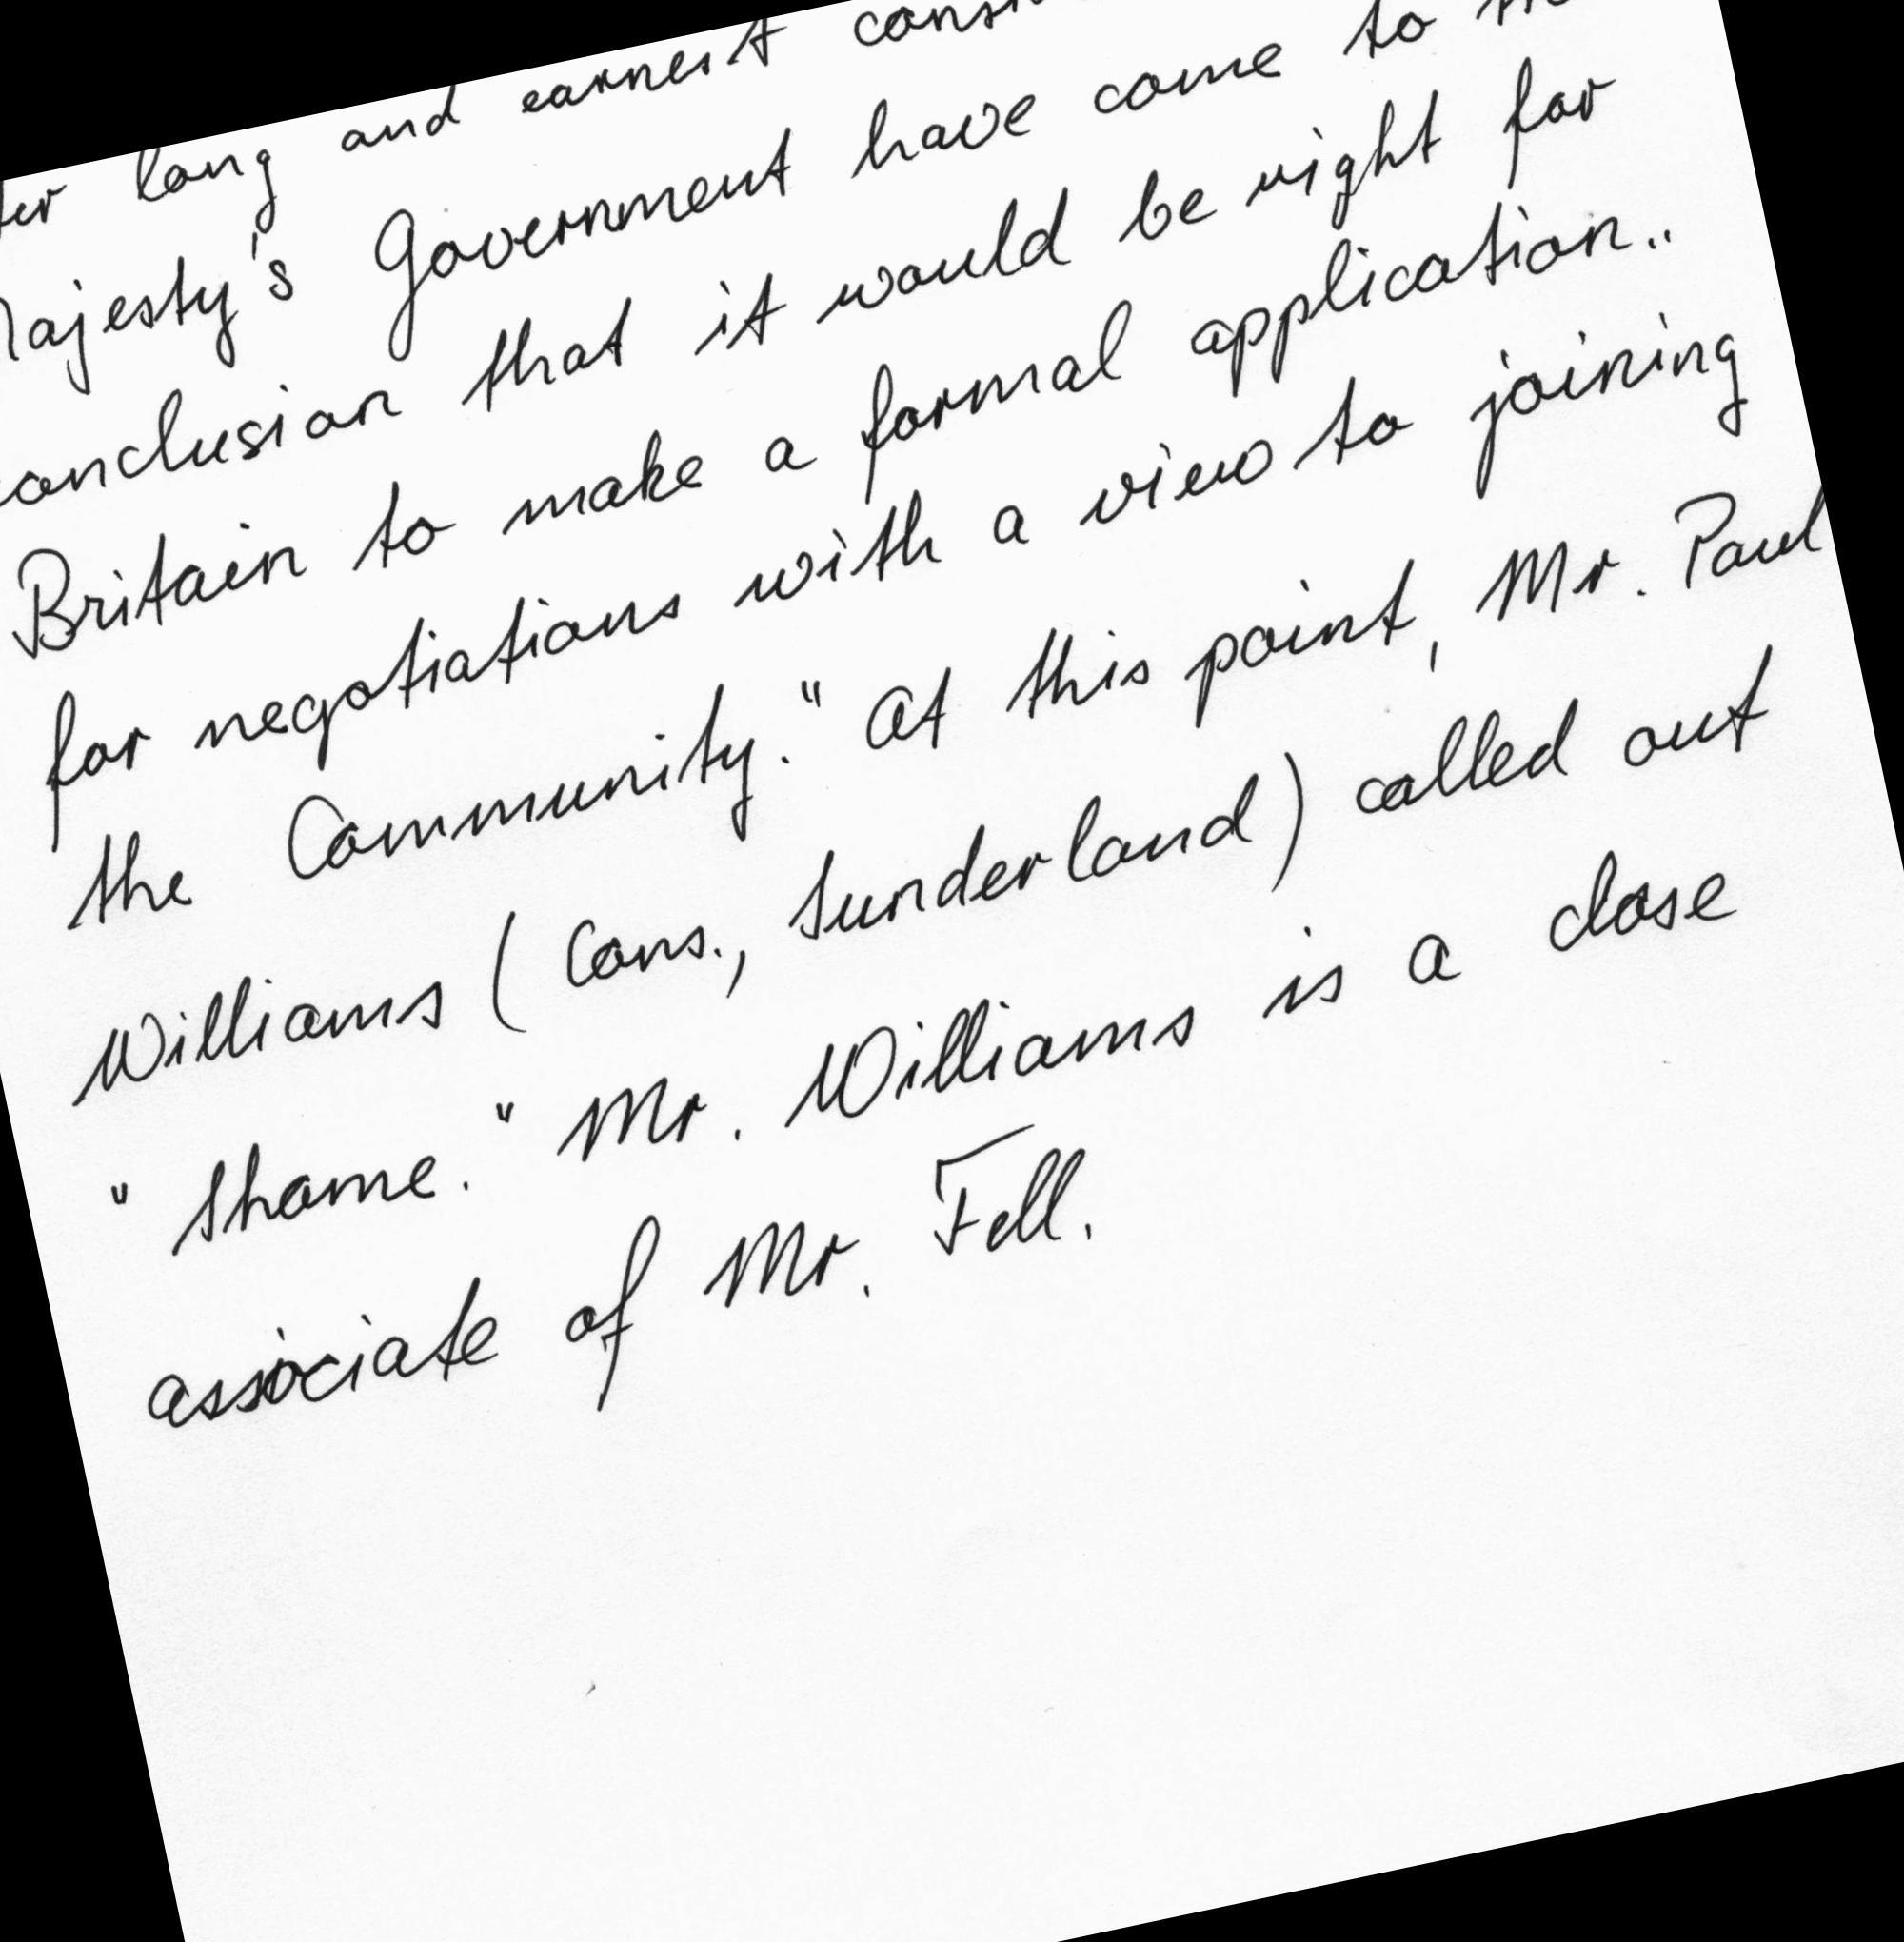 long and earnest
Majesty's Government have come to
conclusion that it would be right for
Britain to make a formal application..
for negotiations with a view to joining
the Community." At this point, Mr. Paul
Williams (Cons., Sunderland) called out
"Shame." Mr. Williams is a close
associate of Mr. Fell.